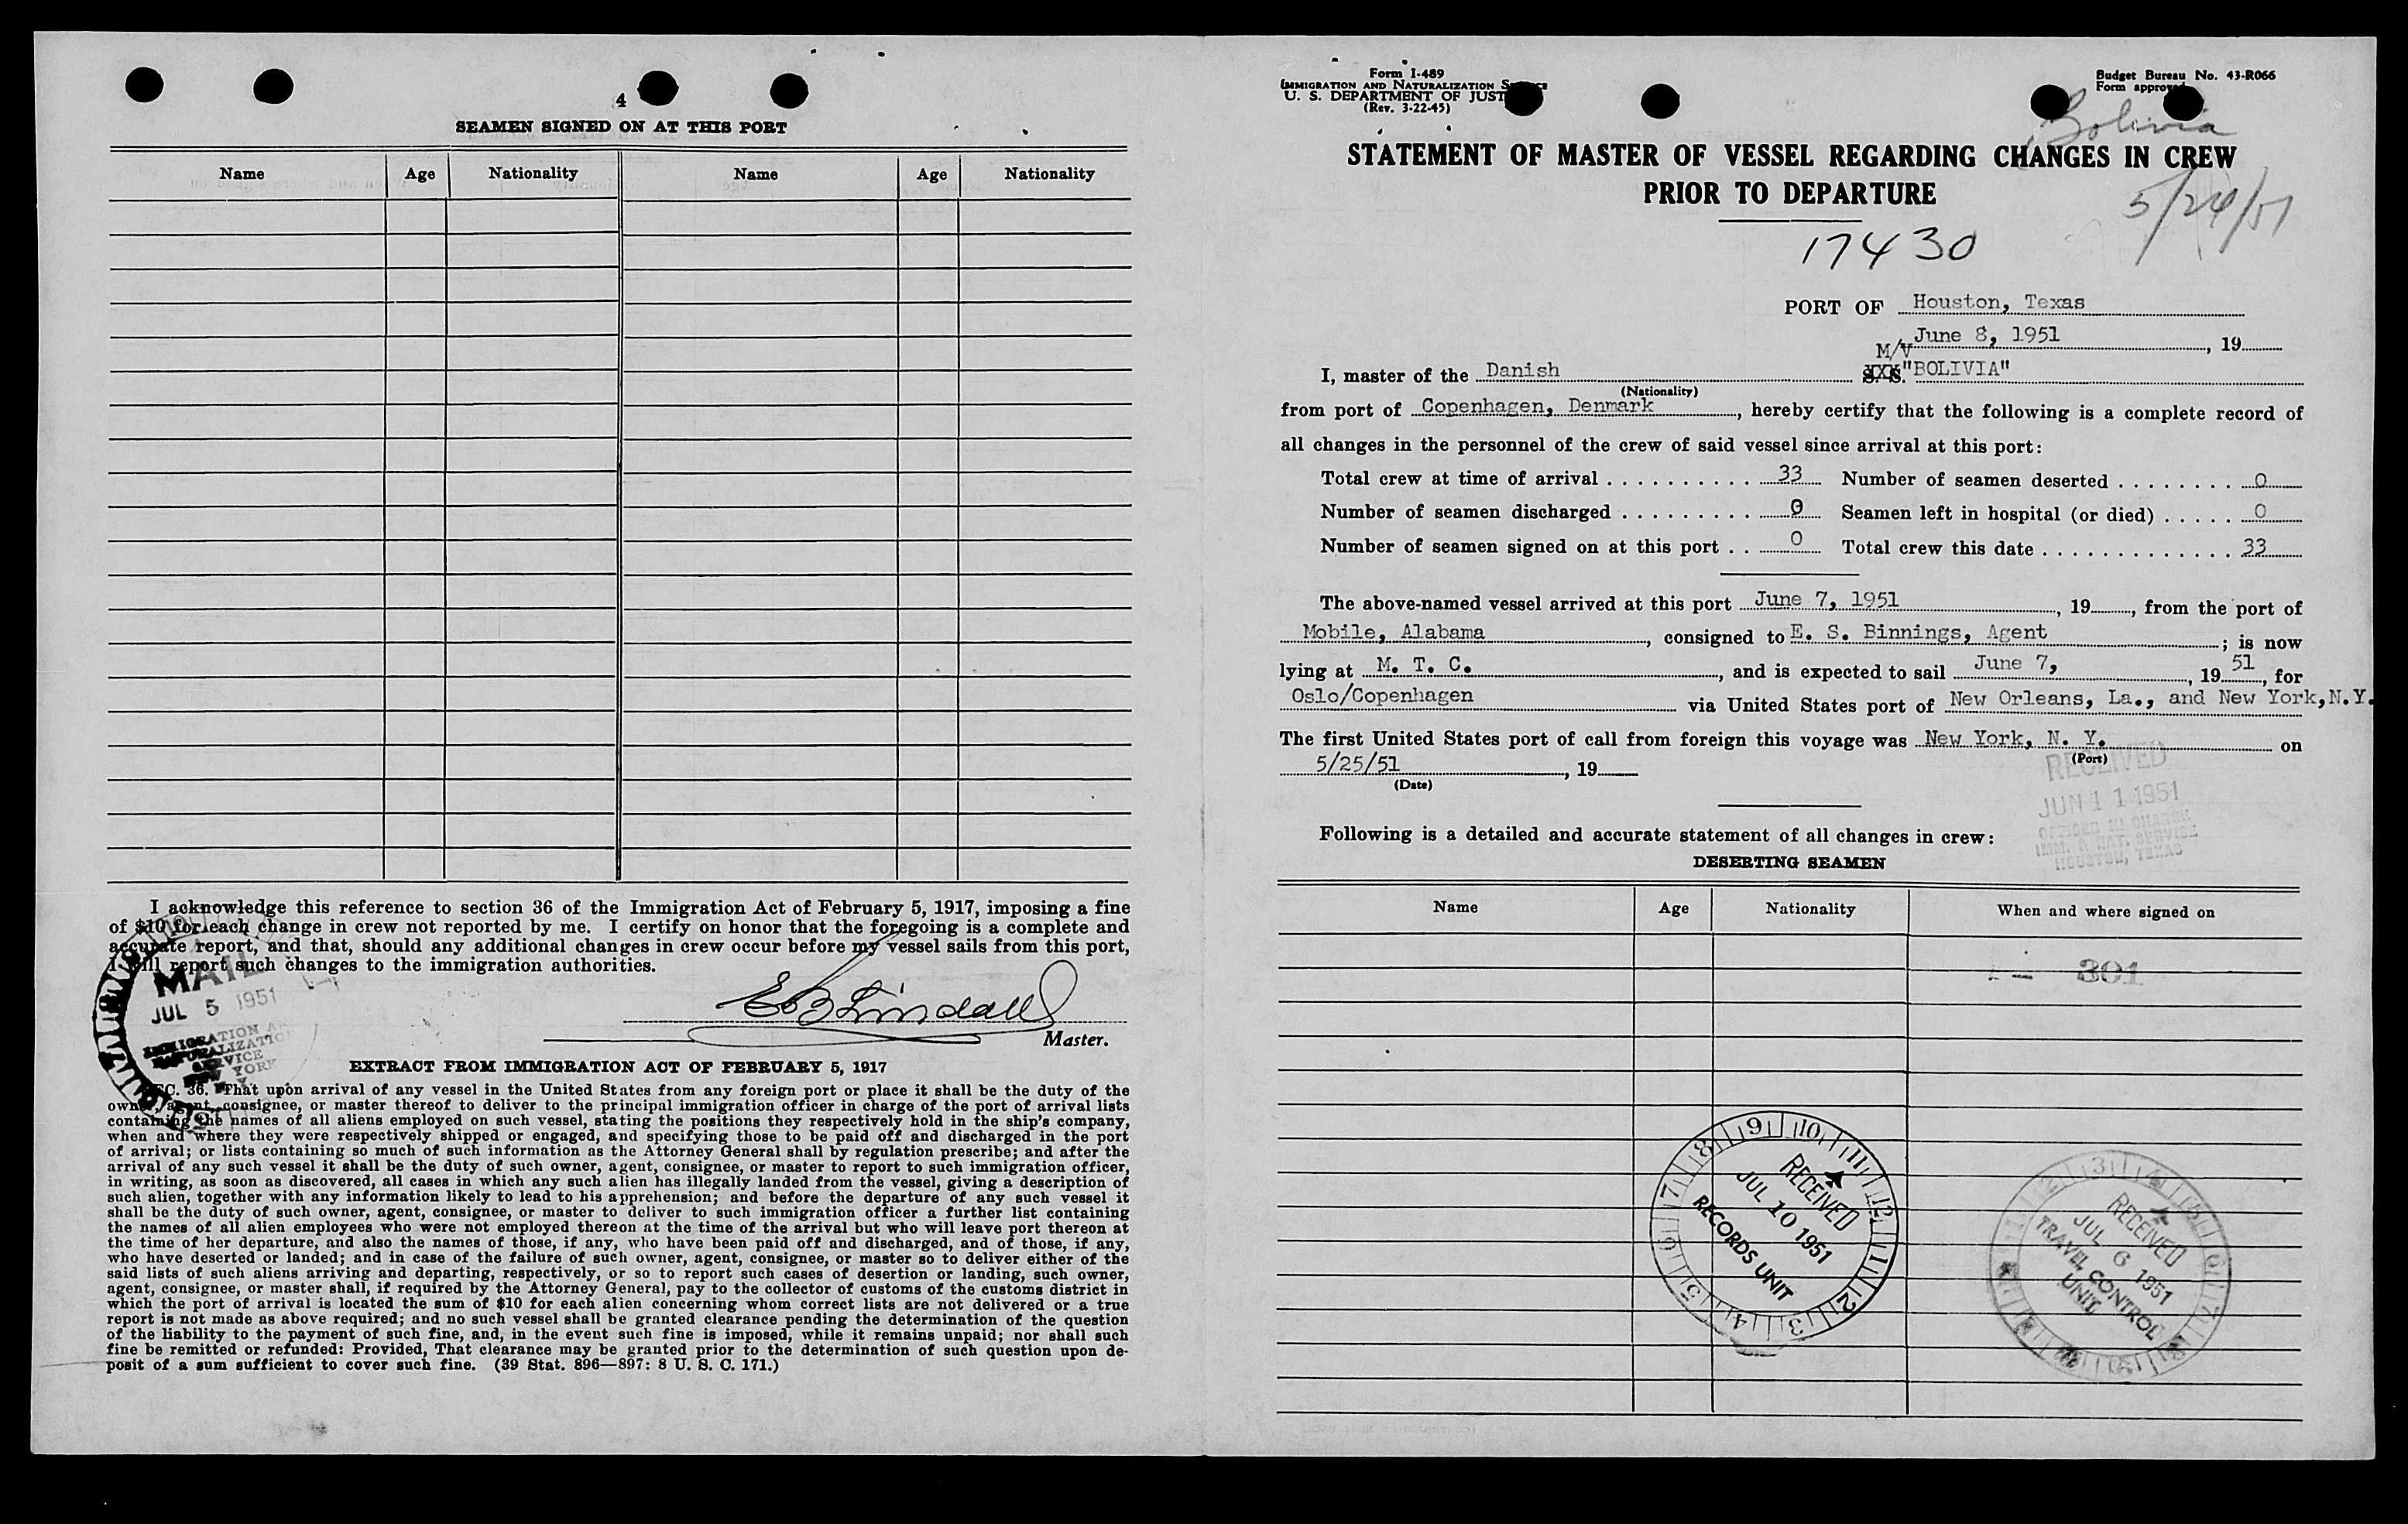 4
SEAMEN SIGNED ON AT THIS PORT
Name Age Nationality Name Age Nationality
I acknowledge this reference to section 36 of the Immigration Act of February 5, 1917, imposing a fine
of $10 for each change in crew not reported by me. I certify on honor that the foregoing is a complete and
accurate report, and that, should any additional changes in crew occur before my vessel sails from this port,
I will report such changes to the immigration authorities.
MAIL
JUL 5 1951
IMMIGRATION AND
NATURALIZATION
SERVICE
NEW YORK
Master.
EXTRACT FROM IMMIGRATION ACT OF FEBRUARY 5, 1917
SEC. 36. That upon arrival of any vessel in the United States from any foreign port or place it shall be the duty of the
owner, agent, consignee, or master thereof to deliver to the principal immigration officer in charge of the port of arrival lists
containing the names of all aliens employed on such vessel, stating the positions they respectively hold in the ship's company,
when and where they were respectively shipped or engaged, and specifying those to be paid off and discharged in the port
of arrival; or lists containing so much of such information as the Attorney General shall by regulation prescribe; and after the
arrival of any such vessel it shall be the duty of such owner, agent, consignee, or master to report to such immigration officer,
in writing, as soon as discovered, all cases in which any such alien has illegally landed from the vessel, giving a description of
such alien, together with any information likely to lead to his apprehension; and before the departure of any such vessel it
shall be the duty of such owner, agent, consignee, or master to deliver to such immigration officer a further list containing
the names of all alien employees who were not employed thereon at the time of the arrival but who will leave port thereon at
the time of her departure, and also the names of those, if any, who have been paid off and discharged, and of those, if any,
who have deserted or landed; and in case of the failure of such owner, agent, consignee, or master so to deliver either of the
said lists of such aliens arriving and departing, respectively, or so to report such cases of desertion or landing, such owner,
agent, consignee, or master shall, if required by the Attorney General, pay to the collector of customs of the customs district in
which the port of arrival is located the sum of $10 for each alien concerning whom correct lists are not delivered or a true
report is not made as above required; and no such vessel shall be granted clearance pending the determination of the question
of the liability to the payment of such fine, and, in the event such fine is imposed, while it remains unpaid; nor shall such
fine be remitted or refunded: Provided, That clearance may be granted prior to the determination of such question upon de-
posit of a sum sufficient to cover such fine. (39 Stat. 896—897: 8 U. S. C. 171.)
Form I-489
IMMIGRATION AND NATURALIZATION
U. S. DEPARTMENT OF JUST
(Rev. 3-22-45)
Budget Bureau No. 43-R066
Form approved
Bolivia
STATEMENT OF MASTER OF VESSEL REGARDING CHANGES IN CREW
PRIOR TO DEPARTURE
5/24/51
17430
PORT OF Houston, Texas
June 8, 1951, 19
I, master of the Danish M/V S. S. "BOLIVIA"
(Nationality)
from port of Copenhagen, Denmark, hereby certify that the following is a complete record of
all changes in the personnel of the crew of said vessel since arrival at this port:
Total crew at time of arrival . . . 33 Number of seamen deserted . . . 0
Number of seamen discharged . . . 0 Seamen left in hospital (or died) . . . 0
Number of seamen signed on at this port . . 0 Total crew this date . . . 33
The above-named vessel arrived at this port June 7, 1951, 19, from the port of
Mobile, Alabama, consigned to E. S. Binnings, Agent; is now
lying at M. T. C., and is expected to sail June 7, 1951, for
Oslo/Copenhagen via United States port of New Orleans, La., and New York, N.Y.
The first United States port of call from foreign this voyage was New York, N. Y. on
(Port)
5/25/51, 19
(Date)
RECEIVED
JUN 11 1951
OFFICER IN CHARGE
IMM. & NAT. SERVICE
HOUSTON, TEXAS
Following is a detailed and accurate statement of all changes in crew:
DESERTING SEAMEN
Name Age Nationality When and where signed on
301
9 10 11 12 1 2 3 4 5 6 7 8
RECEIVED
JUL 10 1951
RECORDS UNIT
RECEIVED
JUL 6 1951
TRAVEL CONTROL
UNIT